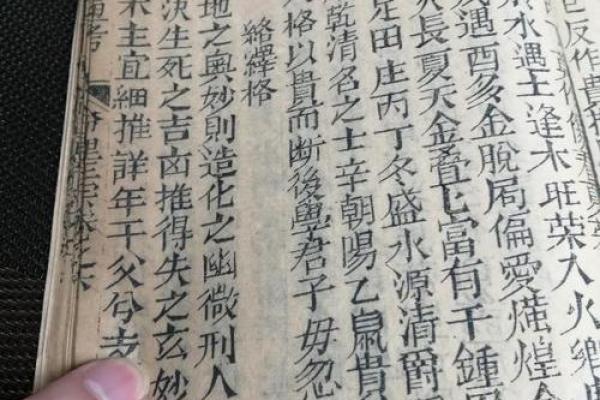 反作貴
水遇土逢木旺榮入火鄉
遇酉多金脫局偏愛熿煌金
長夏天金疊七富有千鍾
足田庄丙丁冬盛水源清爵
乾清名之士辛朝陽乙鼠貴
格以貴而斷後學君子毋忽
絡繹格
地之奧妙則造化之幽微刑人
決生死之吉凶推得失之玄妙
木主宜細推詳年干父兮支